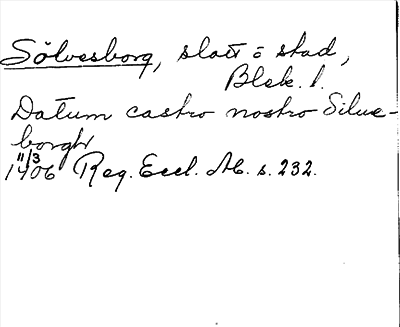 Sölvesborg, slott o stad,
Blek. l.
Datum castro nostro Silues-
borgh
11/3
1406 Reg. Eccl. Ab. s. 232.